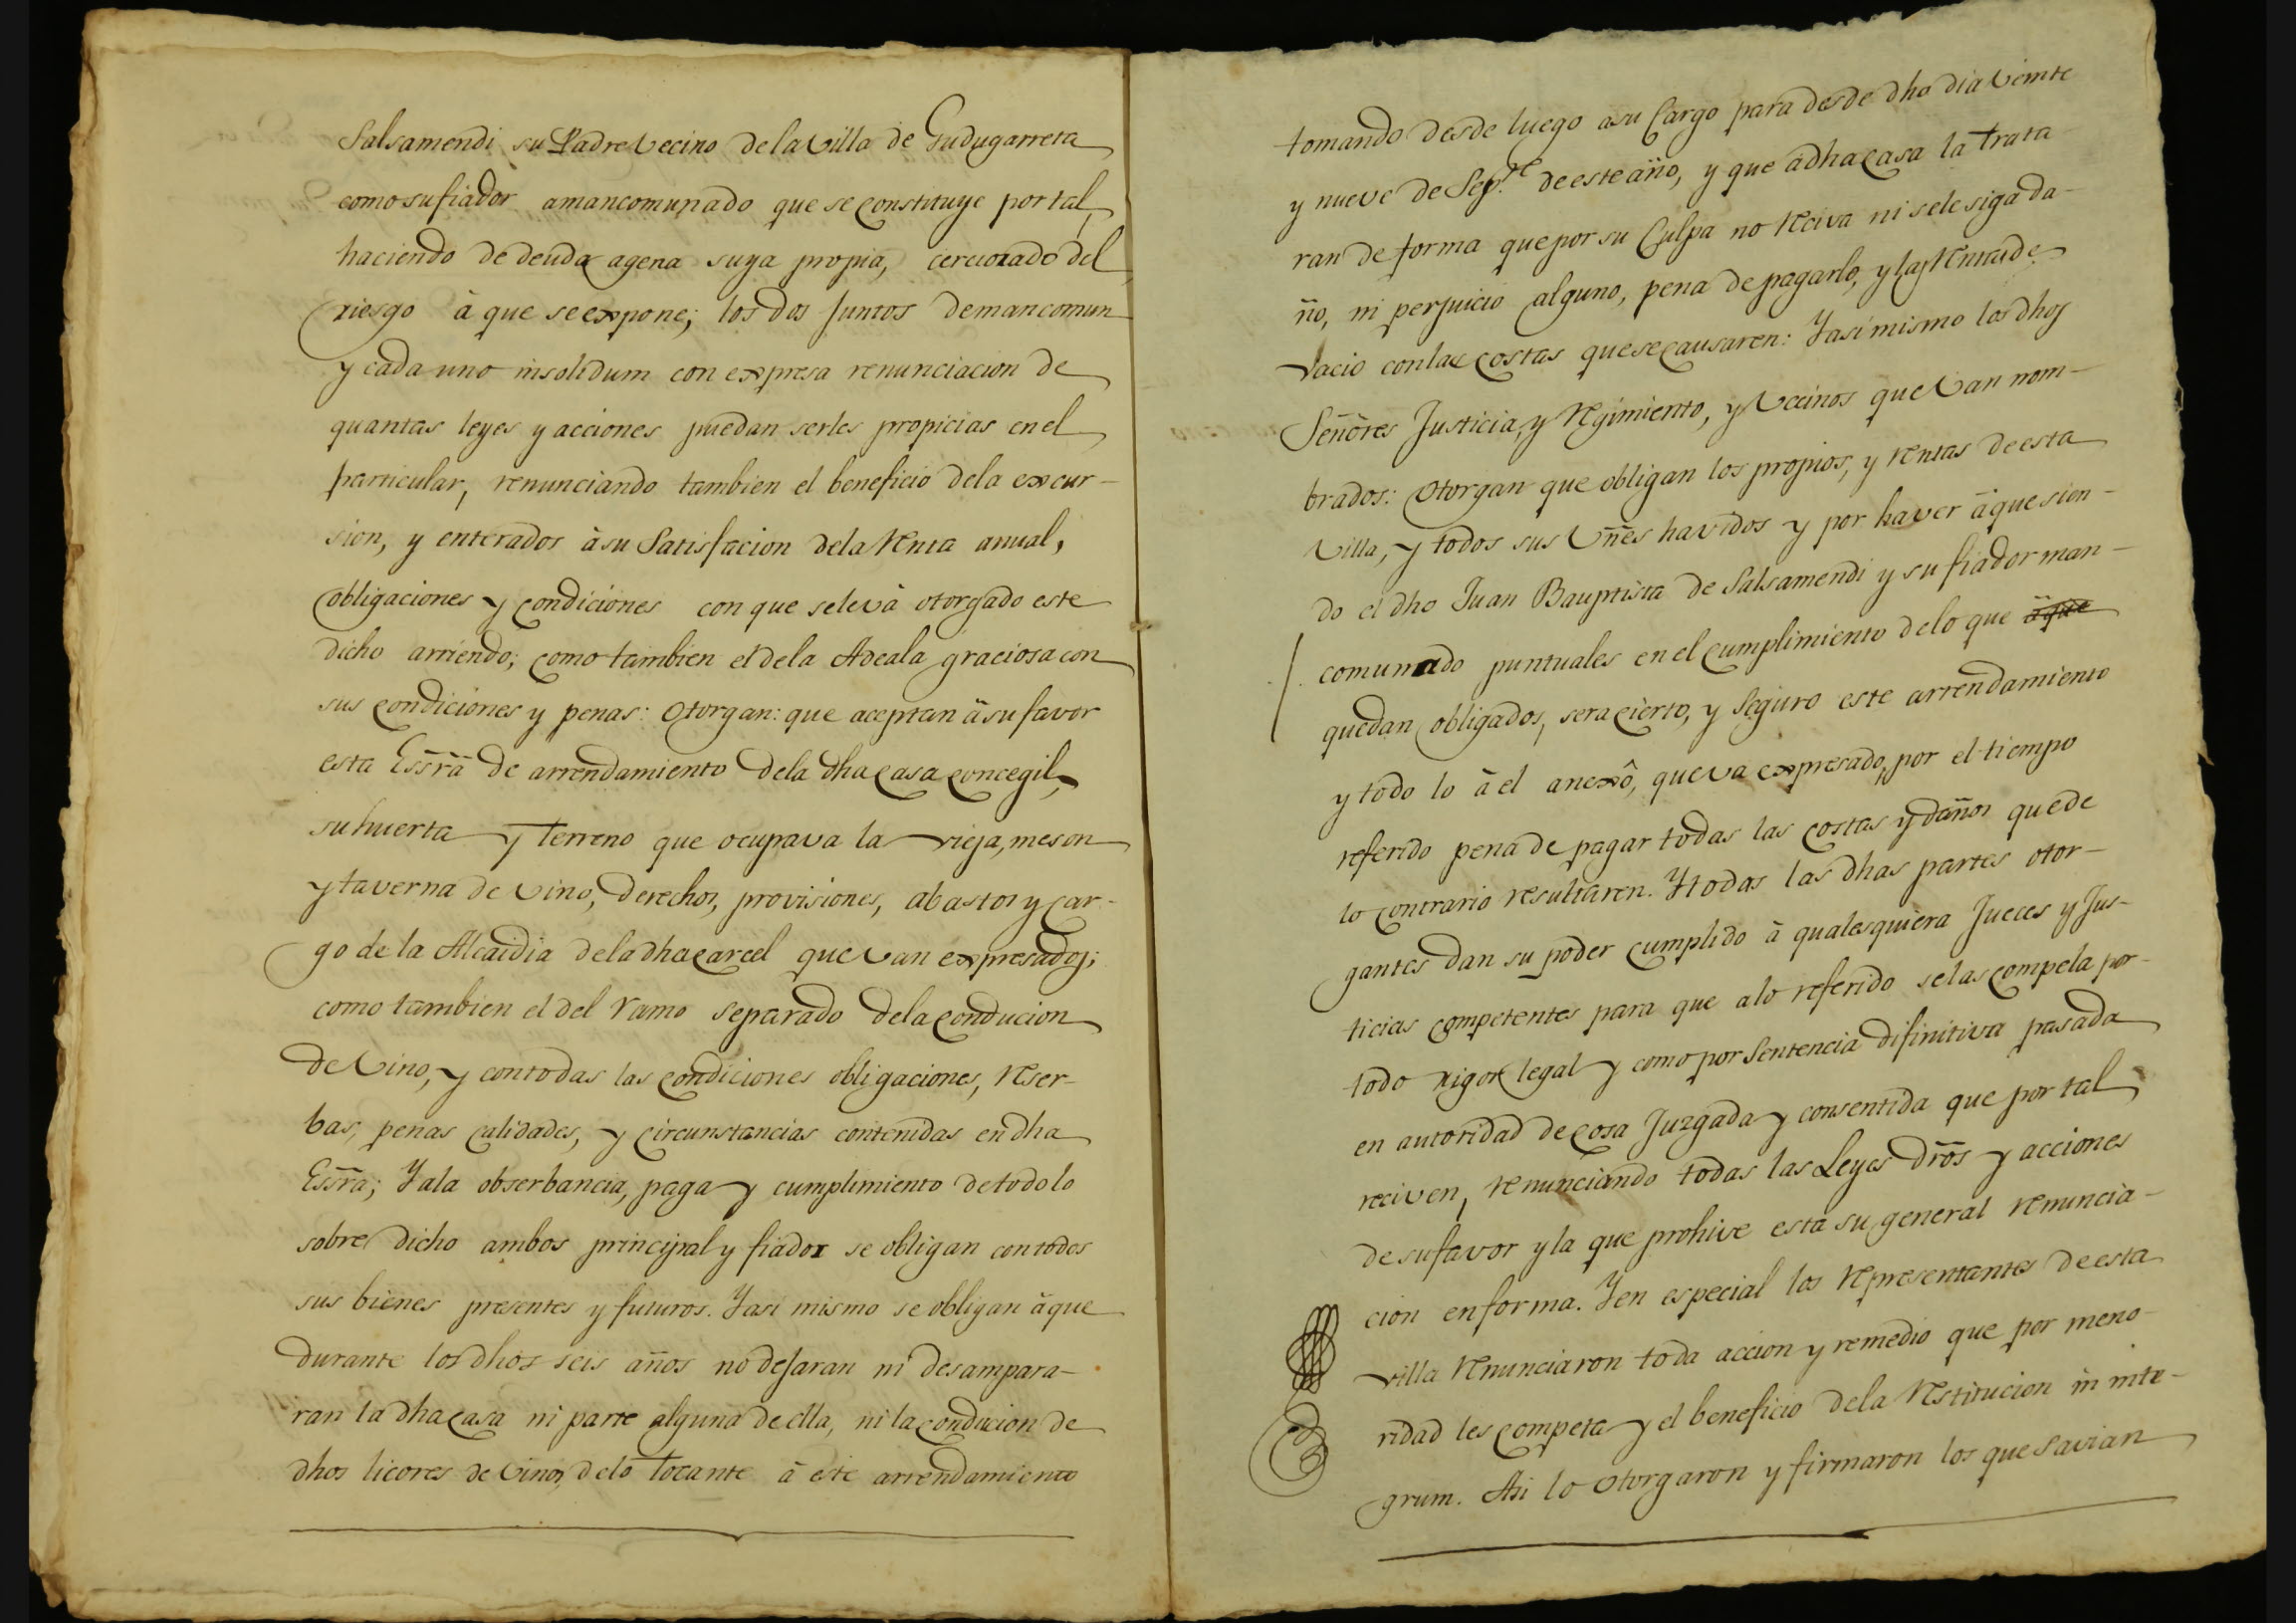 Salsamendi su Padre vecino dela villa de Gudugarreta
como su fiador amancomunado que se constituye por tal,
haciendo de deuda agena suya propia, cerciorado del
riesgo à que se expone; los dos Juntos demancomun
y cada uno insolidum con expresa renunciacion de
quantas leyes y acciones puedan serles propicias en el
particular, renunciando tambien el beneficio dela excur-
sion, y enterados à su Satisfacion dela Renta anual,
obligaciones y condiciones con que se levà otorgado este
dicho arriendo; como tambien el dela Adeala graciosa con
sus condiciones y penas: Otorgan: que aceptan â su favor
esta Essrã de arrendamiento dela dha casa concegil,
su huerta y terreno que ocupava la vieja, meson
y taverna de vino, derechos, provisiones, abastos y car-
go de la Alcaidia dela dha carcel que van expresados;
como tambien el del ramo separado dela conducion
de vino, y con todas las condiciones obligaciones, Reser-
bas, penas calidades, y circunstancias contenidas en dha
Essrã; Y ala obserbancia, paga y cumplimiento de todo lo
sobre dicho ambos principal y fiador se obligan con todos
sus bienes presentes y futuros. Y asi mismo se obligan â que
durante los dhos seis años no dejaran ni desampara-
ran la dha casa ni parte alguna de ella, ni la conducion de
dhos licores de vino, delo tocante â este arrendamiento
tomando desde luego asu Cargo para desde dho dia veinte
y nueve de Sep.re de este año, y que â dha casa la trata
ran de forma que por su Culpa no Reciva ni sele siga da-
ño, ni perjuicio alguno, pena de pagarlo, y las Rentas de
vacio con las costas que se causaren: Y asi mismo los dhos
Señores Justicia, y Regimiento, y vecinos que van nom-
brados: Otorgan que obligan los propios, y Rentas de esta
villa, y todos sus vñes havidos y por haver â que sien-
do el dho Juan Bauptista de Salsamendi y su fiador man-
comunado puntuales en el cumplimiento delo que âque
quedan obligados, sera cierto, y Seguro este arrendamiento
y todo lo à el anexô, que va expresado, por el tiempo
referido pena de pagar todas las costas y daños que de
lo contrario resultaren. Y todas las dhas partes otor-
gantes dan su poder cumplido à qualesquiera Jueces y Jus-
ticias competentes para que alo referido selas compela por
todo rigor legal y como por Sentencia difinitiva pasada
en autoridad de cosa Juzgada y consentida que por tal
reciven, Renunciando todas las Leyes drõs y acciones
de su favor y la que prohive esta su general Renuncia-
cion en forma. Y en especial los Representantes de esta
villa Renunciaron toda accion y remedio que por meno-
ridad les competa y el beneficio dela Restitucion in inte-
grum. Asi lo Otorgaron y firmaron los que Savian